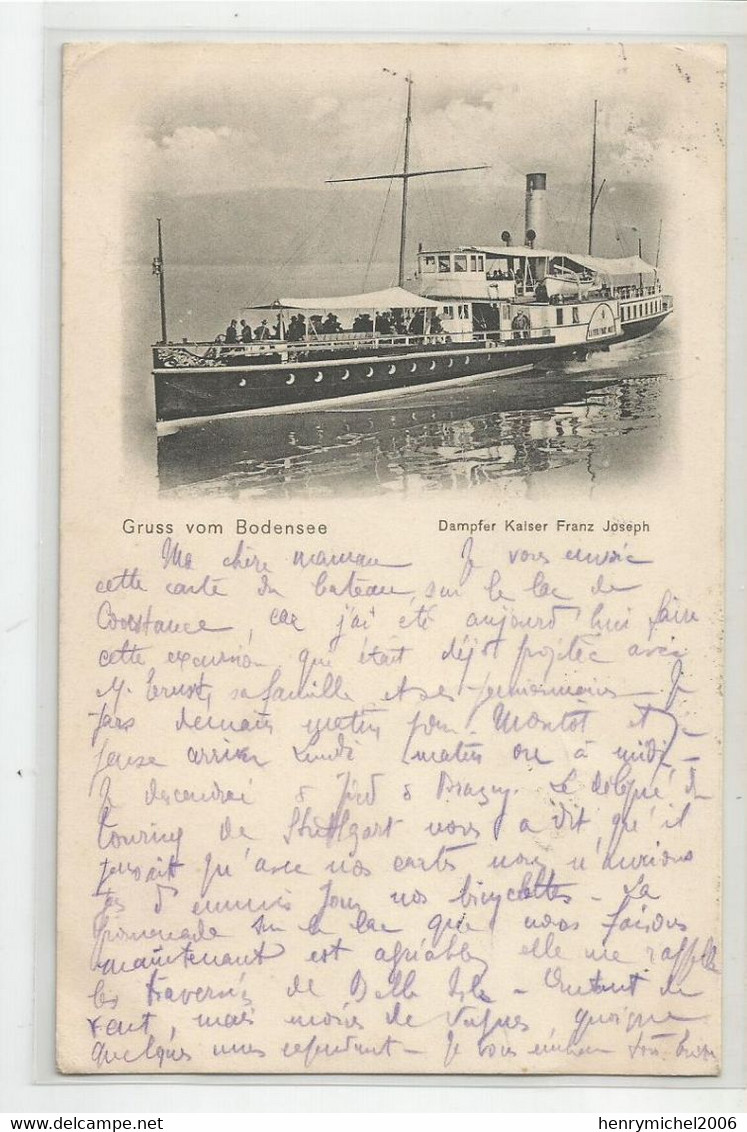 Gruss vom Bodensee
Dampfer Kaiser Franz Joseph
Ma chère maman Je vous envoie
cette carte du bateau, sur le lac de
Constance, car j'ai été aujourd'hui faire
cette excursion qui était déjà projetée avec
M. Ernst, sa famille et ses pensionnaires - Je
pars demain matin pour Montôt et
pense arriver Lundi matin ou à midi -
Je descendrai à pied à Bragny. Le délégué du
touring de Stuttgart nous a dit qu'il
pensait qu'avec nos cartes nous n'aurions
pas d'ennuis pour nos bicyclettes - La
promenade sur le lac que nous faisons
maintenant est agréable, elle me rappelle
les traversées de Belle Isle - Autant de
vent, mais moins de vagues quoique
quelques unes cependant - Je vous
henrymichel2006